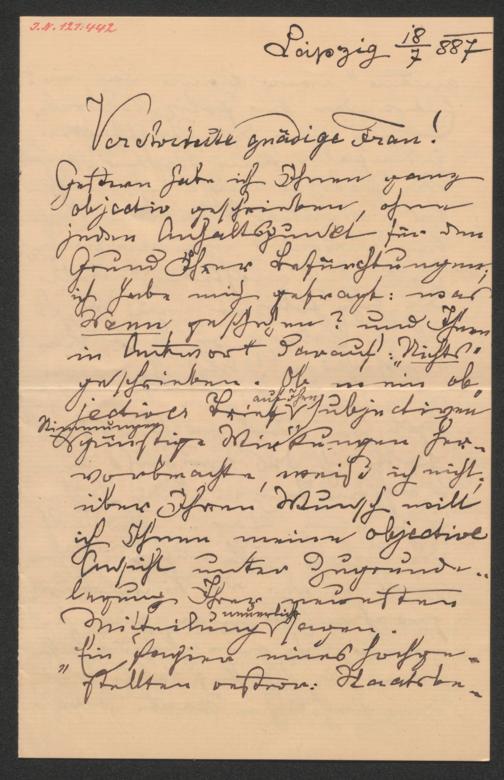 I.N. 121.442
Leipzig 18/7 887
Verehrteste gnädige Frau!
Gestern habe ich Ihnen ganz
objectiv geschrieben, ohne
jeden Anhaltspunkt für den
Grund Ihrer Befürchtungen,
ich habe mich gefragt: was
kann geschehen? und Ihnen
in Antwort darauf: „Nichts"
geschrieben. Ob mein ob-
jectiver Brief auf Ihre subjectiven
Stimmungen
günstige Wirkungen her-
vorbrachte, weiß ich nicht,
über Ihren Wunsch will
ich Ihnen meine objective
Ansicht unter Zugrunde-
legung Ihrer neuesten
Mitteilung neuerlich sagen.
„Ein Papier eines hochge-
stellten oestrr: Staatsbe-